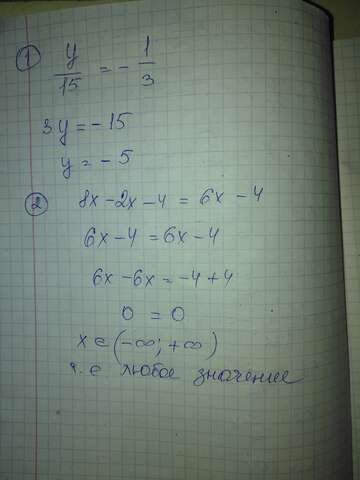 ① y/15 = - 1/3
3y = -15
y = -5
② 8x - 2x - 4 = 6x - 4
6x - 4 = 6x - 4
6x - 6x = -4 + 4
0 = 0
x ∈ (-∞; +∞)
т.е любое значение